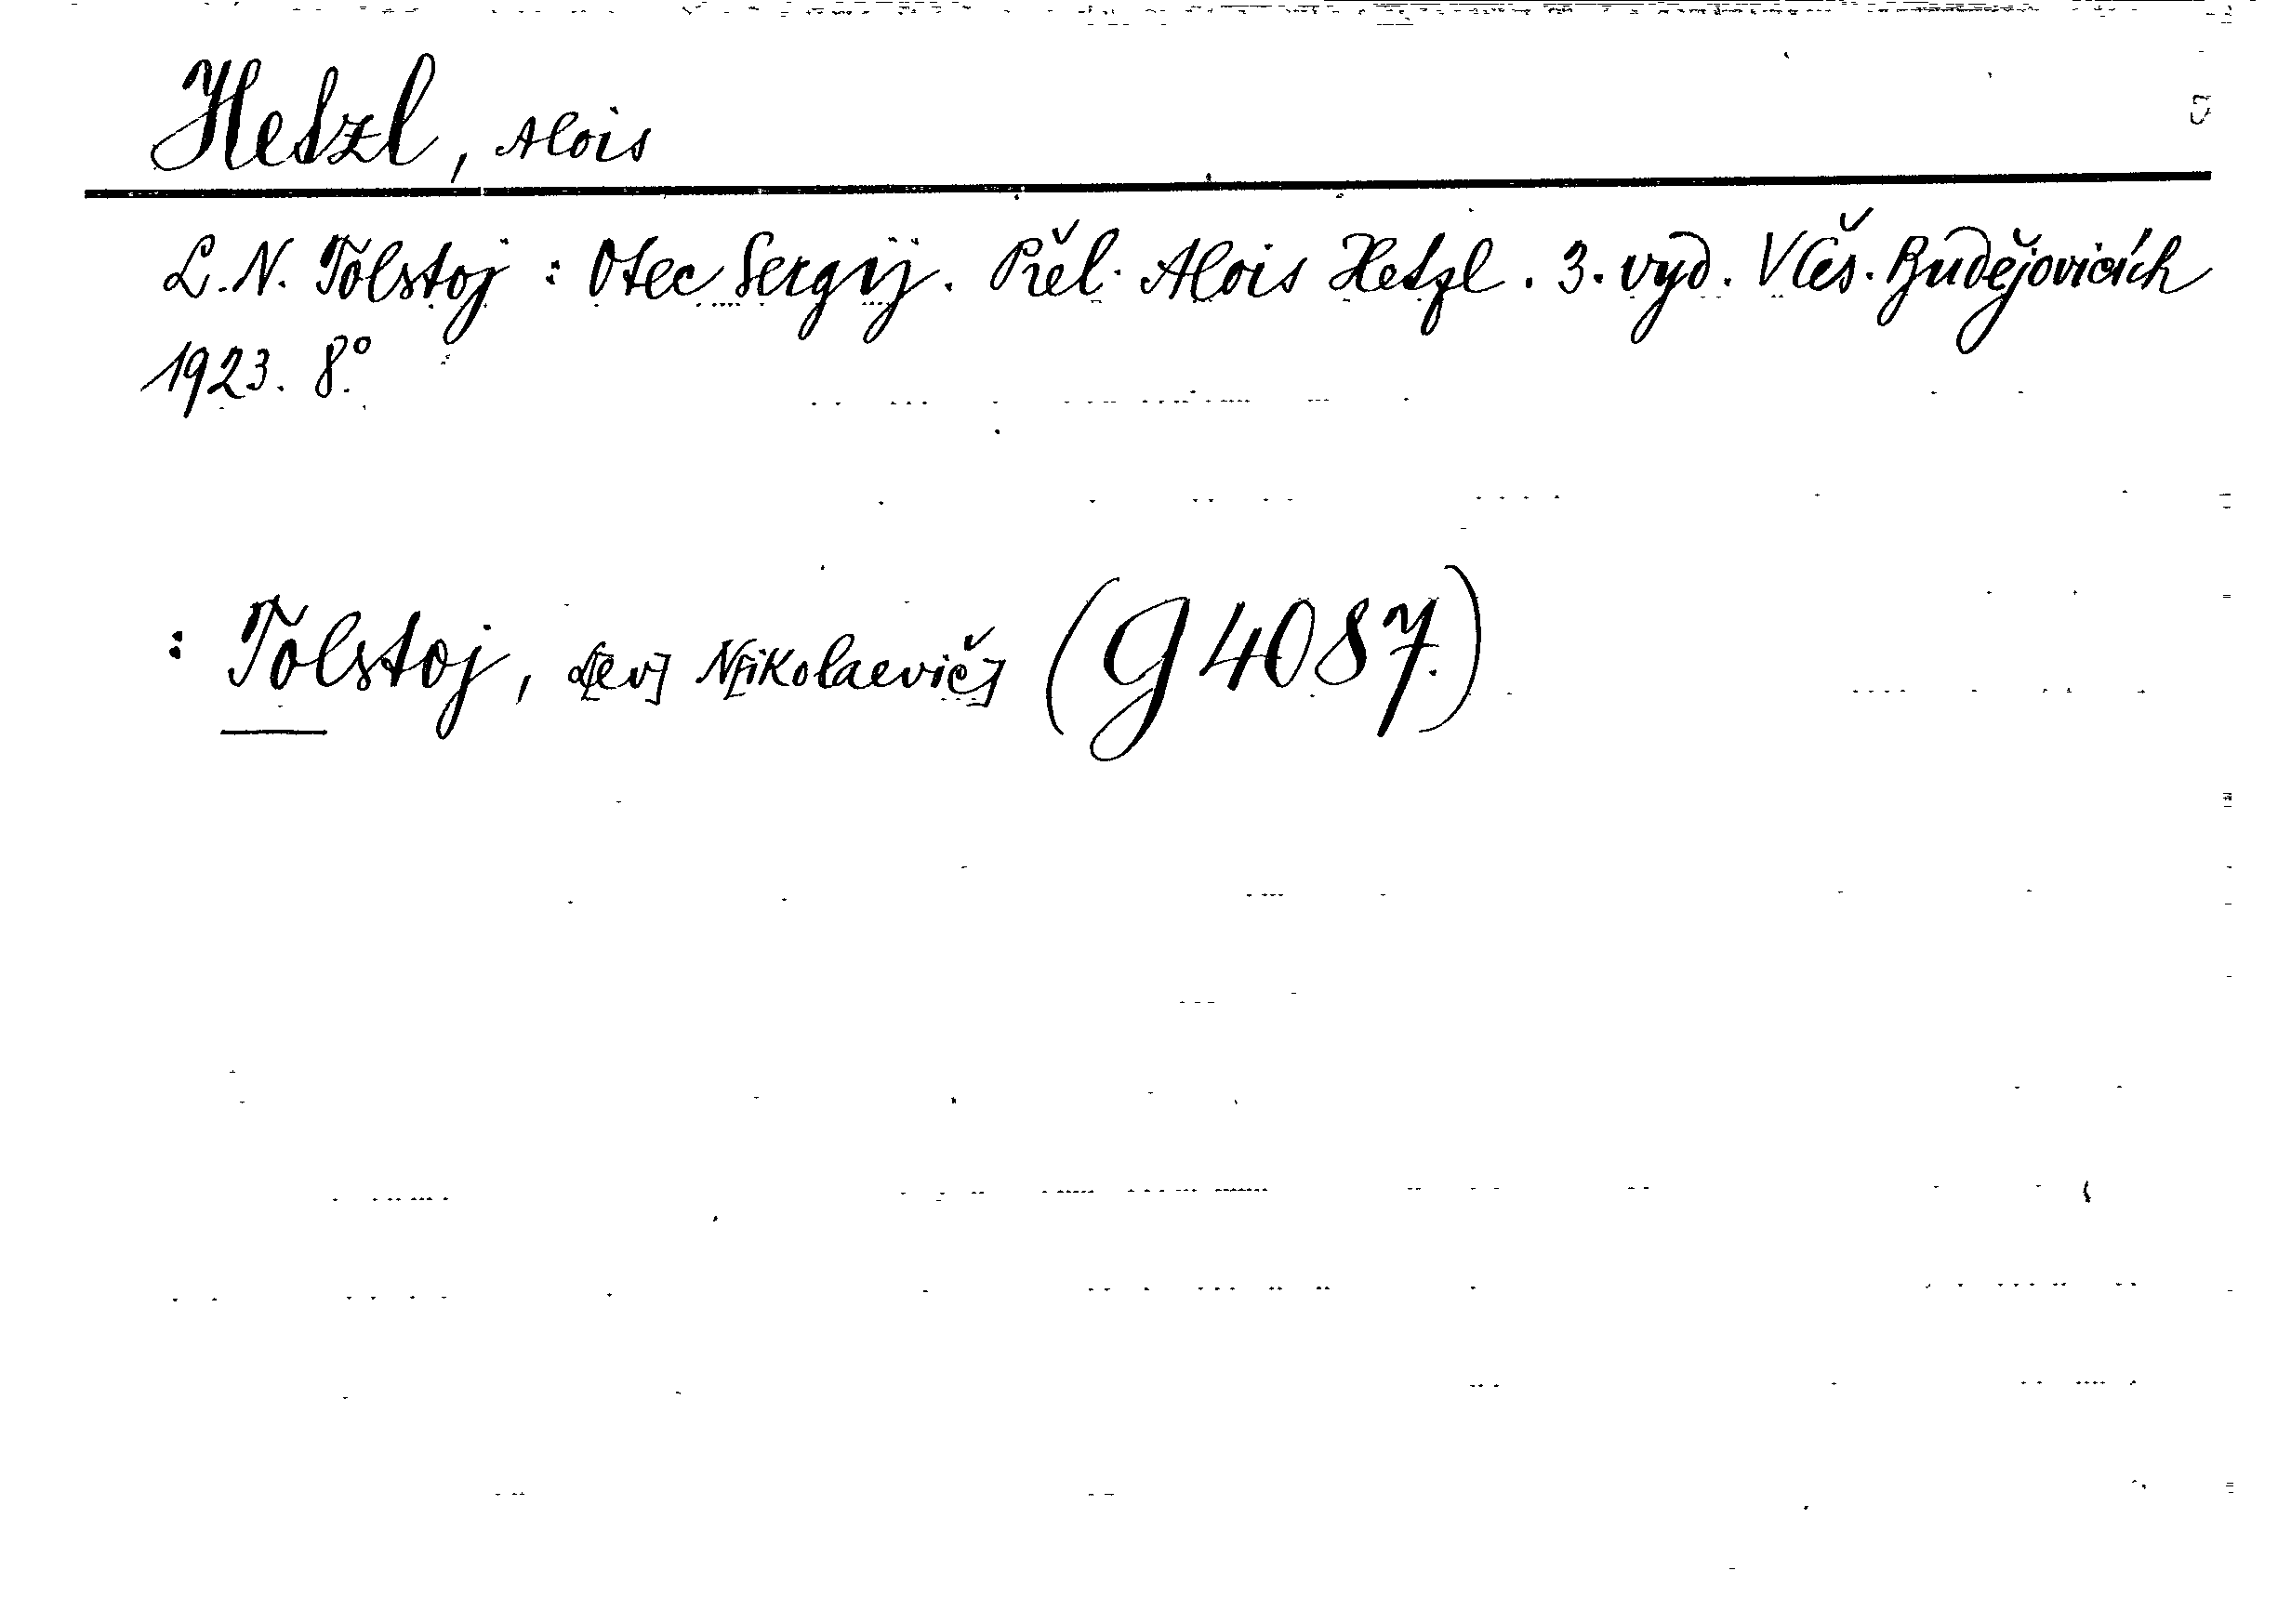 Hetzl, Alois
L. N. Tolstoj : Otec Sergij. Přel. Alois Hetzl. 3. vyd. V Čes. Budějovicích
1923. 8°.
: Tolstoj, L[ev] N[ikolaevič] (G 4087.)